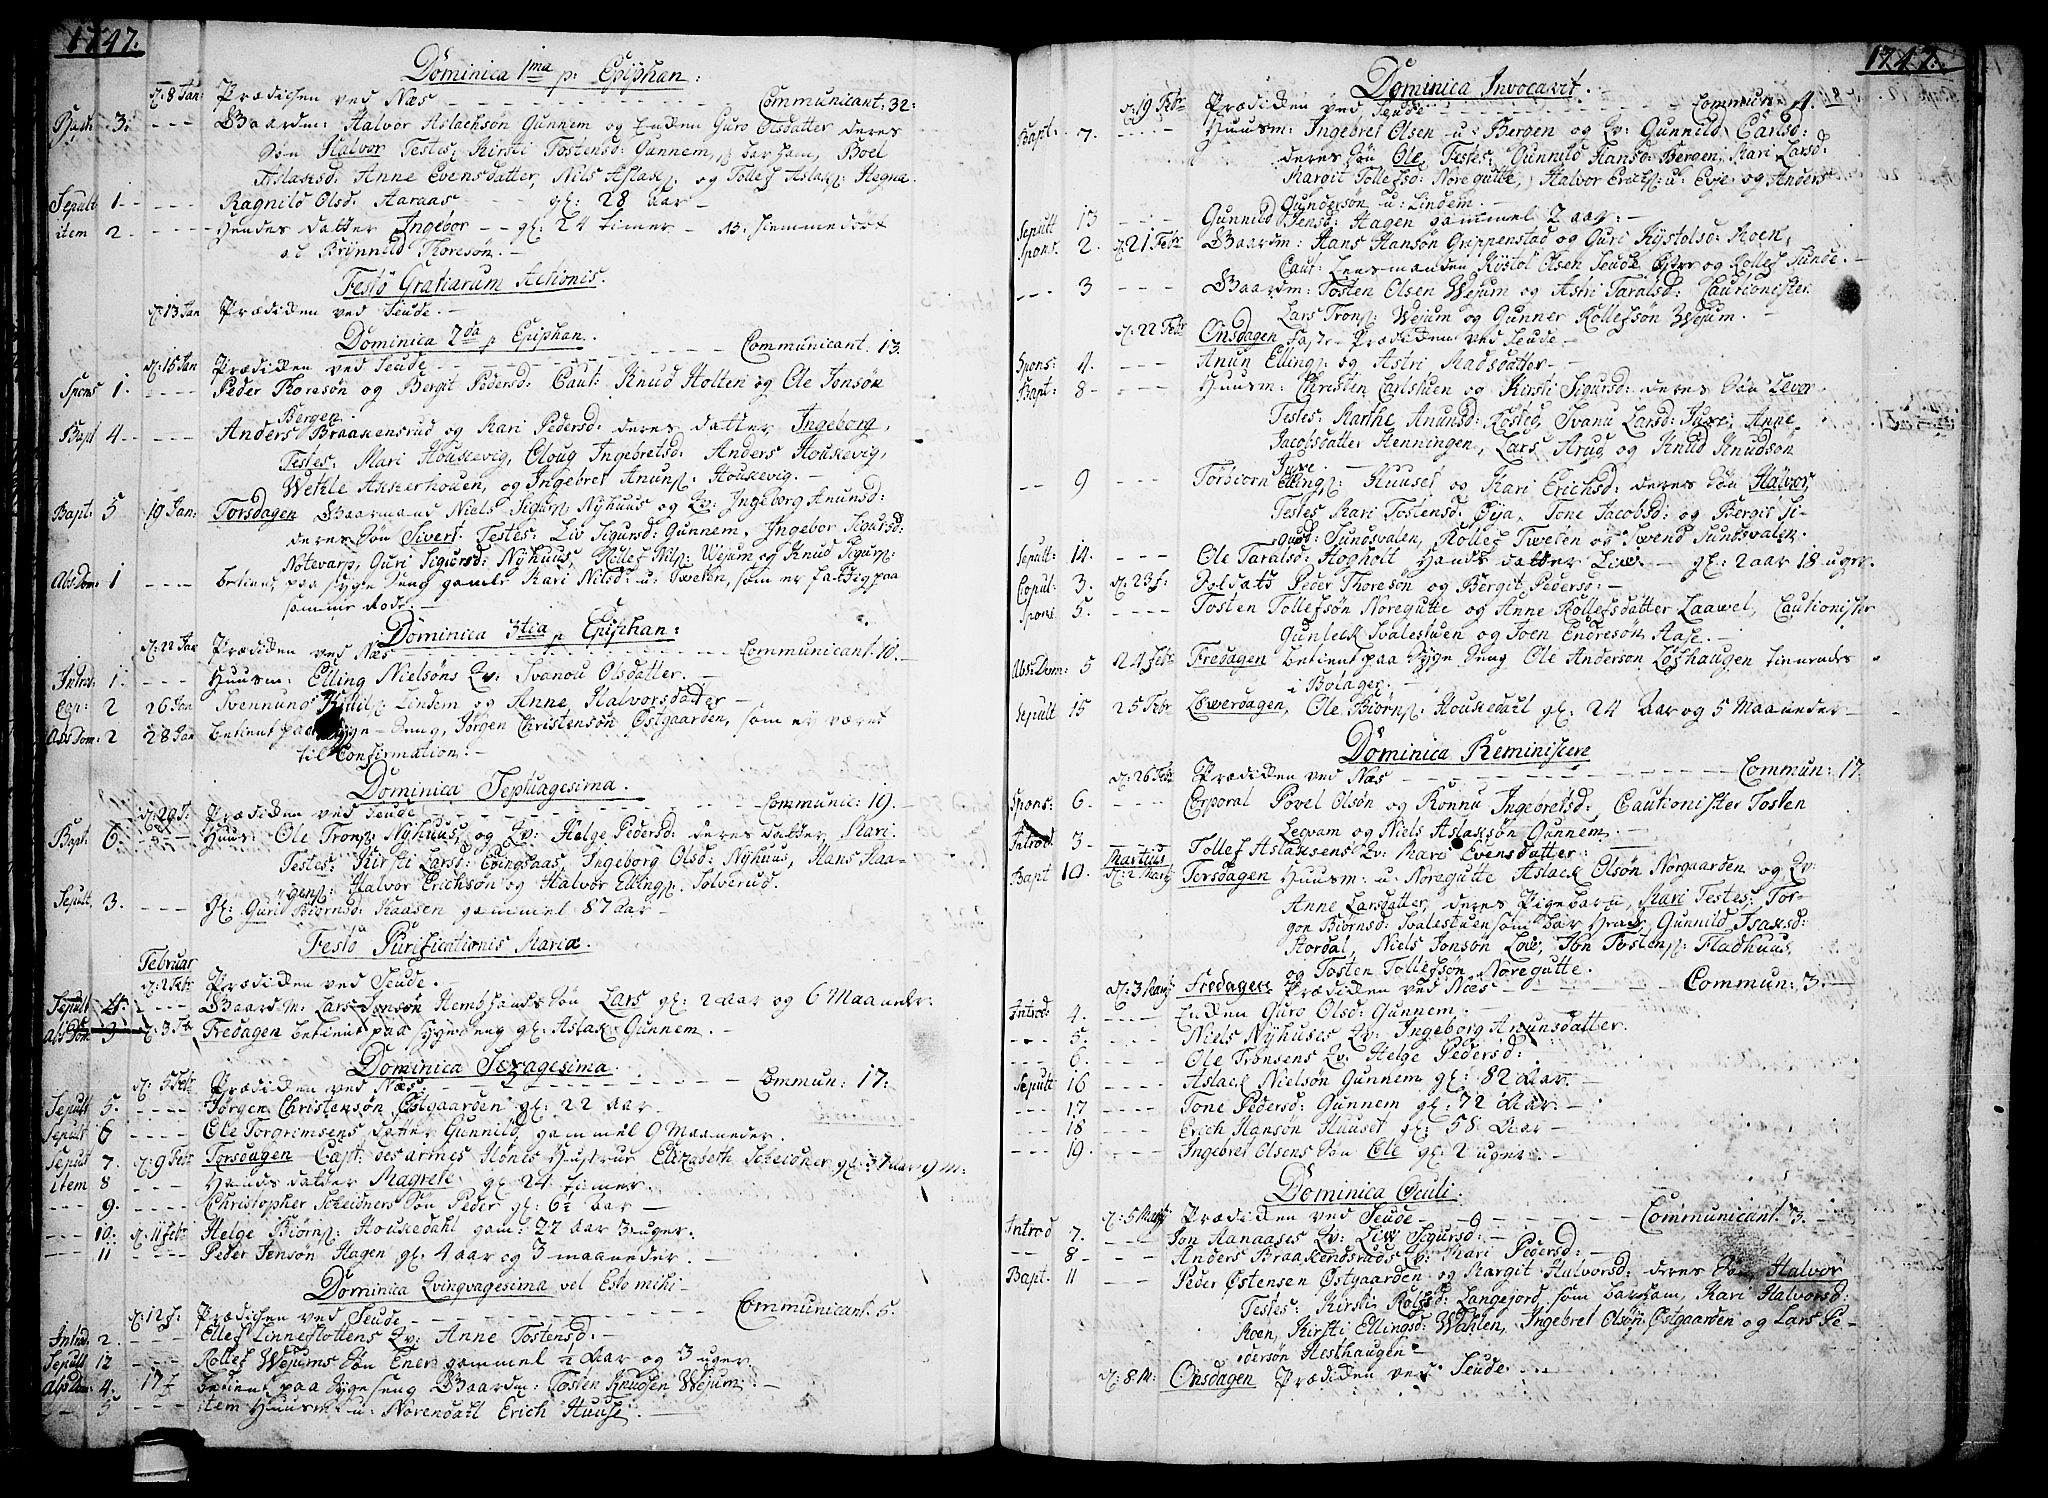 1747.
Dominica 1ma p: Epiphan:
d: 8 Jan: Prædichen ved Næs - - - Communicant: 32:
Bapt: 3. - - - Gaardm: Halvor Aslachsön Gunnem og Enchen Guro Olsdatter deres
Sön Halvor Testes: Kirsti Tostensd: Gunnem, bar ham, Boel
Aslaksd: Anne Evensdatter, Nils Aslaks: og Tollef Aslaks: Hegna.
Sepult 1. - - - Ragnild Olsd: Aaraas - - gl: 28 Aar -
item 2. - - - Hendes datter Ingebor - - gl: 24 timer - N: hiemmedöbt
af Brynnild Thoresön. -
Festo Gratiarum Actionis.
d: 13 Jan Prædichen ved Seude. -
Dominica 2da p Epiphan.
d: 15 Jan Prædichen ved Seude - - - Communicant. 13.
Spons 1. - - - Peder Thoresön og Bergit Pedersd: Caut: Knud Holten og Ole Jonsön
Bergen.
Bapt 4. - - - Anders Braakensrud og Mari Pedersd: deres datter Ingeborg,
Testes: Mari Houkevig, Oloug Ingebretsd: Anders Houkevig,
Wetle Ankerhouen, og Ingebret Anuns: Houkevig. -
Bapt: 5 19 Jan: Torsdagen Gaarmand Niels Sigurs: Nyhuus og Qv: Ingeborg Anunsd:
deres Sön Sivert. Testes: Liv Sigursd: Gunnem, Ingebor Sigursd:
Notevarp, Guri Sigursd: Nyhuus, Rollef Nils: Wejum og Knud Sigurs:
Abs Dom: 1 - - - betient paa syge Seng gamle Kari Nilsd: u: Tveten, som er fattig paa
samme Rode. -
Dominica 3tia p Epiphan:
d: 22 Jan Prædichen ved Næs - - - Communicant. 10. -
Introd: 1. - - - Huusm: Elling Nielsöns Qv: Svanou Olsdatter. -
Cop: 2 26 Jan Svennung Kitils: Lindem og Anne Halvorsdatter -
Abs Dom: 2 28 Jan betient paa syge-Seng, Jörgen Christensön Östgaarden, som ey været
til Confirmation. -
Dominica Septuagesima.
d: 29 J. Prædichen ved Seude - - - Communic: 19. -
Bapt: 6. - - - Huus: Ole Trons: Nyhuus, og Qv: Helge Pedersd: deres datter Mari
Testes: Kirsti Larsd: Evingsaas, Ingeborg Olsd: Nyhuus, Hans Haa-
gens: Halvor Erichsön og Halvor Ellings: Solverud.
Sepult. 3. - - - Gl: Guri Biörnsd: Kaasen gammel 87 Aar -
Festo Purificationis Mariæ.
Februar
d: 2 Febr Prædichen ved Seude.
Sepult 4. - - - Gaardm: Lars Jonsön Sön Lars gl: 2 Aar og 6 Maaneder:
Abs Dom. 3 d: 3 Feb Fredagen betient paa sygeseng gl: Aslak Gunnem. -
Dominica Sexagesima.
d: 5 Febr Prædichen ved Næs - - - Commun: 17:
Sepult 5. - - - Jörgen Christensön Östgaarden gl: 22 Aar -
Sepult 6 - - - Ole Torgrimsens datter Gunnild gammel 9 Maaneder.
Sepult 7. d: 9 Febr Torsdagen Capt: des armes Hönes Hustrue Elizabeth Scheidner gl: 37 Aar 9 M:
item 8 - - - Hands datter Magrete gl: 24 timer.
- - - 9. - - - Christopher Scheidners Sön Peder gl: 6½ Aar -
- - - 10. d: 11 Febr Helge Biörns: Houkedahl gam: 22 Aar 3 uger.
- - - 11 - - - Peder Jensön Hagen gl: 4 aar og 3 maaneder. -
Dominica Qvinqvagesima vel Esto mihi -
d: 12 f: Prædichen ved Seude - - - Communicant. 5.
Introd: 2. - - - Ellef Linneflottens Qv: Anne Tostensd: -
Sepult 12 - - - Rollef Wejums Sön Ener gammel ½ Aar og 3 uger
Abs Dom: 4. 17 f betient paa Syge Seng Gaardm: Tosten Knudsen Wejum. -
- - 5 - - - item Huusm: u: Norendahl Erich Huuse. -
1747.
Dominica Invocavit.
d: 19 Febr Prædichen ved Seude - - - Commun: 4.
Bapt: 7. - - - Huusm: Ingebret Olsen u: Bergen og Qv: Gunnild Carlsd:
deres Sön Ole, Testes: Gunnild Hansd: Bergen, Mari Larsd:
Margit Tollefsd: Noregutte, Halvor Erichs: u: Evje og Anders
Gunderson u: Lindem. -
Sepult 13 - - - Gunnild Jensd: Hagen gammel 2 aar. -
Spons. 2. d: 21 Febr Gaardm: Hans Hansön Grippenstad og Guri Kystolsd: Moen,
Caut: Lensmanden Kystol Olsen Seude og Rollef Sunde. -
- - - 3 Gaardm: Tosten Olsen Wejum og Astri Taralsd: Cautionister
Lars Trons: Wejum og Gunner Rollefsön Wejum. -
d: 22 Febr Onsdagen Faste-Prædichen ved Seude -
Spons: 4. - - - Anun Ellings: og Astri Madsdatter. -
Bapt: 8 - - - Huusm: Christen Carlstuen og Kirsti Sigursd: deres Sön Lever -
Testes: Marthe Anunsd: Rosteg, Svanu Larsd: Juve, Anne
Jacobsdatter Henningen, Lars Krug og Knud Knudsön
Juve. -
- - 9 - - - Torbiorn Ellings: Huuset og Kari Erichsd: deres Sön Halvor,
Testes Kari Tostensd: Eija, Tone Jacobsd: og Bergit Si-
gursd: Sundsvalen, Rollef Tveten og Svend Sundsvalen.
Sepult: 14. - - - Ole Taralsd: Hogholt Hands datter Live. - gl: 2 aar 18 uger.
Copul: 3. d: 23 f: Soldats Peder Thoresön og Bergit Pedersd: -
Spons: 5. - - - Tosten Tollefsön Noregutte og Anne Rollefsdatter Laawel, Cautionister
Gunleck Svalestuen og Joen Endresön Aase. -
Abs Dom: 5 24 Febr Fredagen betient paa Syge Seng Ole Anderson Löfhaugen tienendes
i Böiager. -
Sepult 15 25 Febr Löwerdagen, Ole Biörns: Houkedahl gl: 24 Aar og 5 Maaneder -
Dominica Reminiscere
d: 26 Febr Prædichen ved Næs - - - Commun: 17
Spons: 6. - - - Corporal Povel Olsön og Ronnu Ingebretsd: Cautionister Tosten
Legvam og Niels Aslaksön Gunnem. -
Introd 3 - Tollef Aslaksens Qv: Mari Evensdatter: -
Martius
Bapt 10. d: 2 Marty Torsdagen Huusm: u: Noregutte Aslack Olsön Norgaarden og Qv:
Anne Larsdatter, deres Pigebarn, Mari Testes: Tor-
gon Biörnsd: Svalestuen som bar hende, Gunnild Isaksd:
Stordal, Niels Jonsön Lov, Jon Tostens: Fladhuus
og Tosten Tollefsön Noregutte. -
d: 3 Marty Fredagen Prædichen ved Næs - - - Commun: 3. -
Introd: 4. - - - Enchen Guro Olsd: Gunnem. -
- - - 5. - - - Niels Nyhuses Qv: Ingeborg Anunsdatter.
- - - 6. - - - Ole Tronsens Qv: Helge Pedersd: -
Sepult 16 - - - Aslack Nielsön Gunnem gl: 82 Aar. -
- - - 17 - - - Tone Pedersd: Gunnem gl: 72 Aar: -
- - - 18 - - - Erich Hansön Huuset gl: 58 Aar -
- - - 19. - - - Ingebret Olsens Sön Ole gl: 2 uger. -
Dominica Oculi.
d: 5 Marty Prædichen ved Seude - - - Communicant. 3. -
Introd 7. - - - Jon Aanaases Qv: Liv Sigursd: -
- - 8 - - - Anders Braakensruds Qv: Mari Pedersd: -
Bapt. 11 - - - Peder Östensen Östgaarden og Margit Halvorsd: deres Sön Halvor
Testes: Kirsti Rolfsd: Langejord som bar ham, Kari Halvorsd:
Moen, Kirsti Ellingsd: Wahlen, Ingebret Olsön Östgaarden og Lars Pe-
dersön Hesthaugen -
d: 8 M: Onsdagen Prædichen ved Seude. -